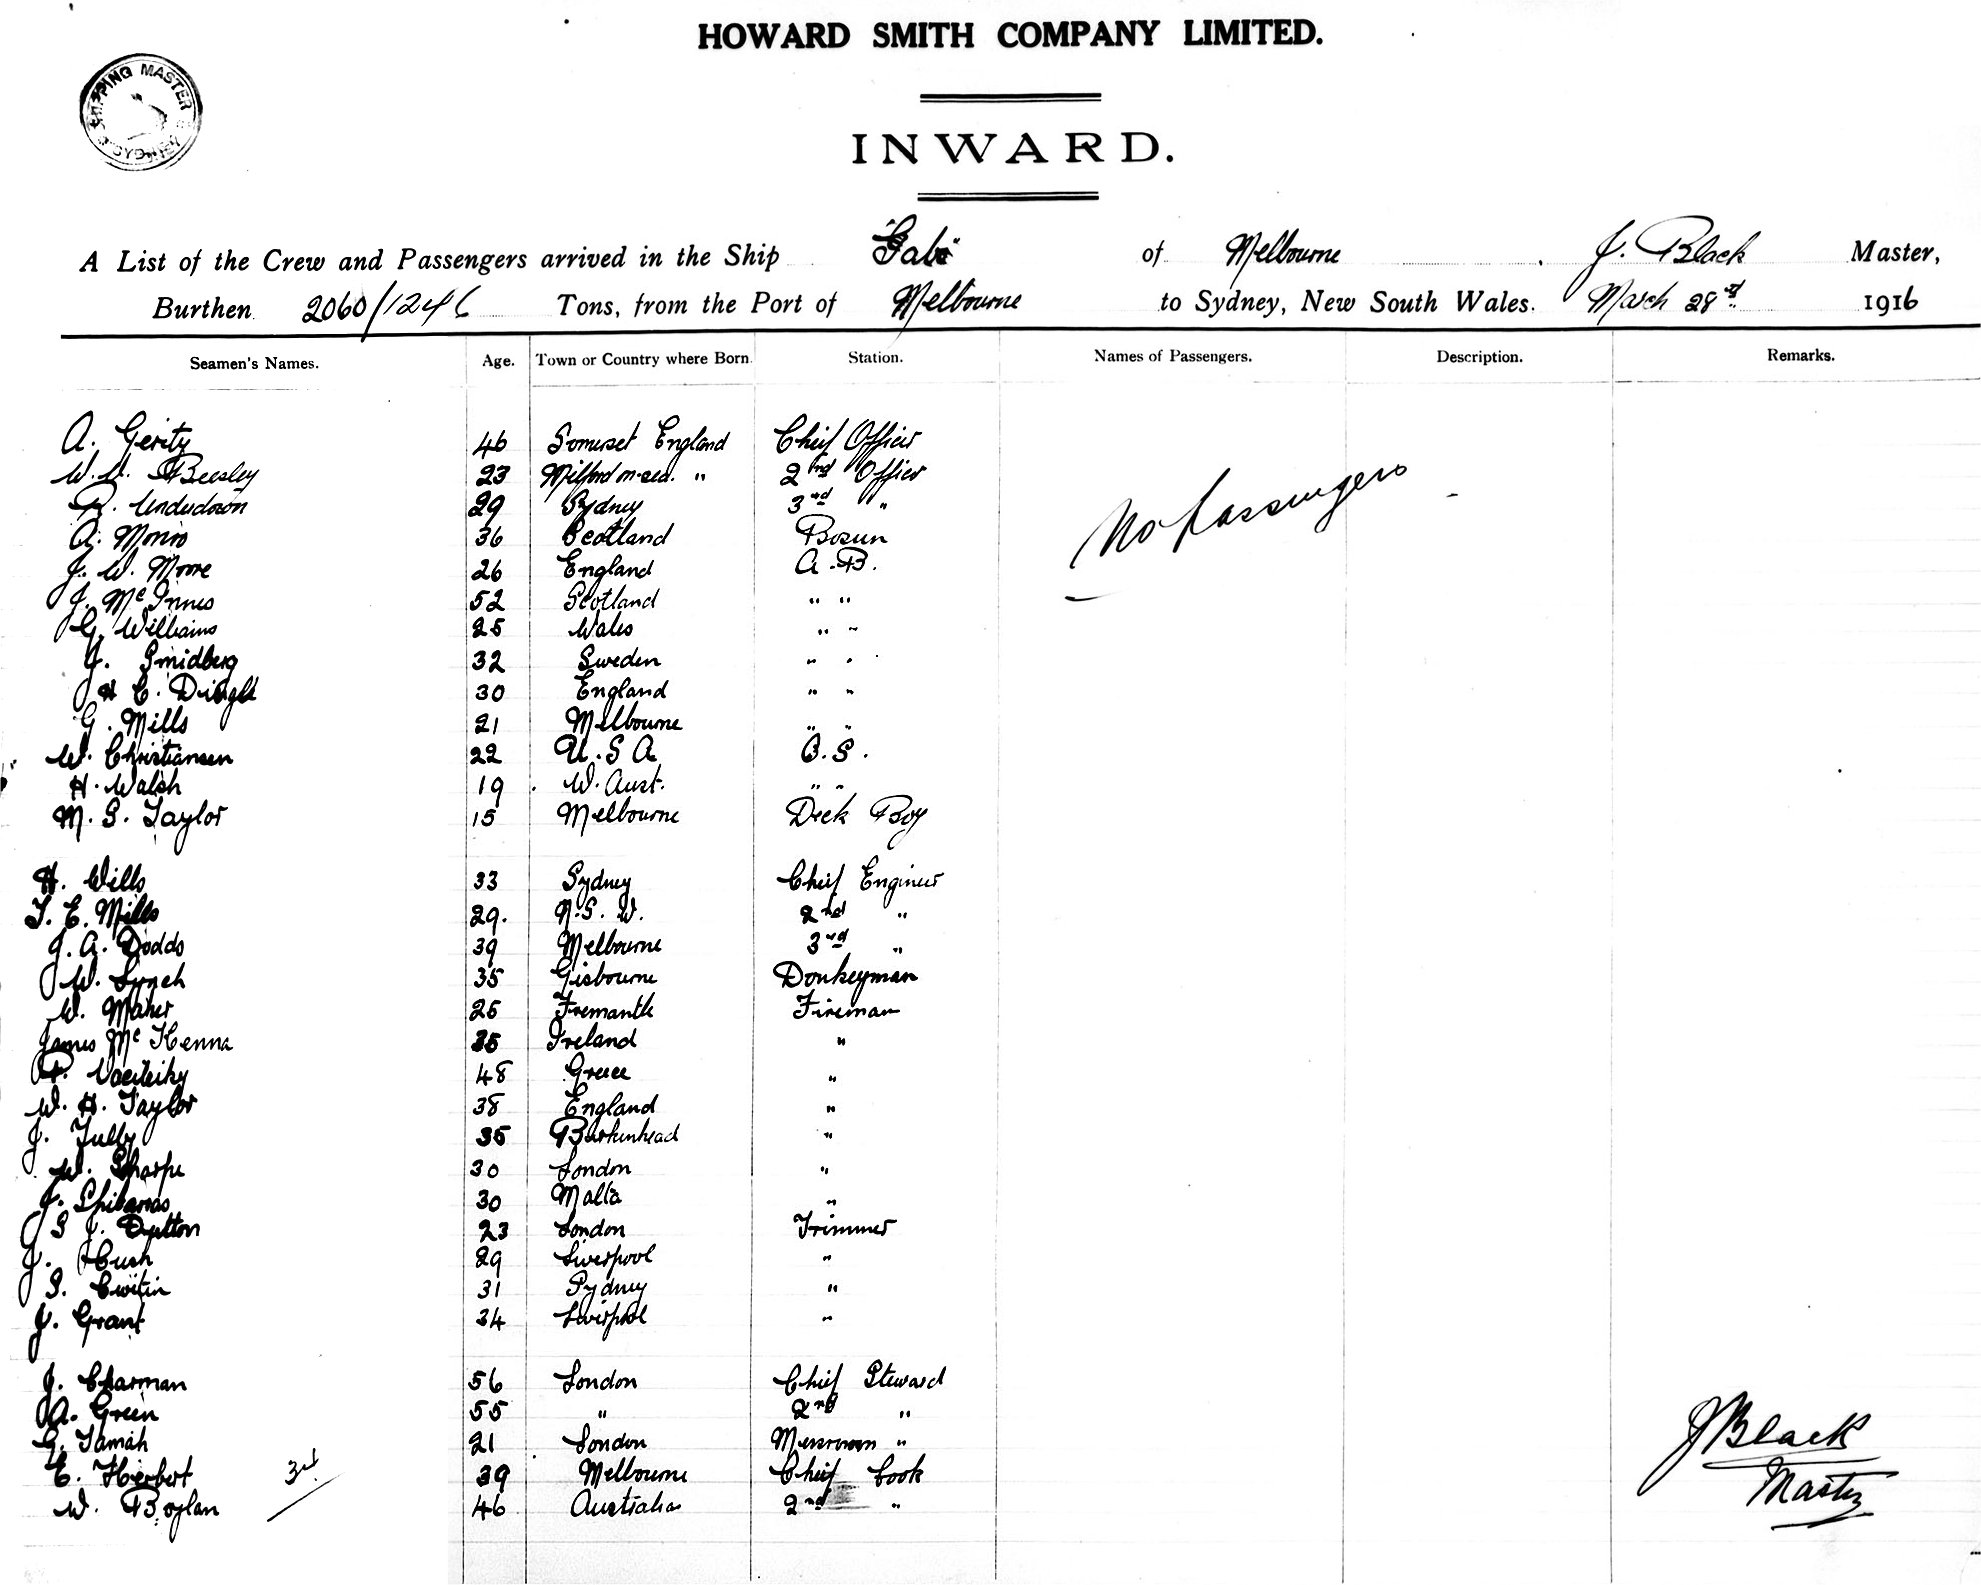 HOWARD SMITH COMPANY LIMITED.
SHIPPING MASTER SYDNEY
INWARD.
A List of the Crew and Passengers arrived in the Ship of Melbourne J. Black Master,
Burthen 2060/1246 Tons, from the Port of Melbourne to Sydney, New South Wales. March 28 1916
Seamen's Names. Age. Town or Country where Born. Station. Names of Passengers. Description. Remarks.
A. Gerity 46 Somerset England Chief Officer
W. Beesley 23 Milford on-sea. " 2nd Officer
R. Underdown 29 Sydney 3rd "
No Passengers
A. Monro 36 Scotland Bosun
J. W. Moore 26 England A.B.
J. McInnes 52 Scotland " "
G. Williams 25 Wales " "
J. Smidberg 32 Sweden " "
H C. 30 England " "
G. Mills 21 Melbourne " "
W. Christiansen 22 U.S.A. O.S.
H. Walsh 19 W. Aust. " "
M. S. Taylor 15 Melbourne Deck Boy
H. Wills 33 Sydney Chief Engineer
T. E. Mills 29. N.S.W. 2nd "
J. A. Dodds 39 Melbourne 3rd "
W. Lynch 35 Gisbourne Donkeyman
W. Maher 25 Fremantle Fireman
James McKenna 35 Ireland "
P. 48 Greece "
W. H. Taylor 38 England "
J. Tully 35 Birkenhead "
W. Sharpe 30 London "
J. 30 Malta "
S J. Dutton 23 London Trimmer
J. Rush 29 Liverpool "
S. 31 Sydney "
J. Grant 34 Liverpool "
J. Charman 56 London Chief Steward
A. Green 55 " 2nd "
G. Tamah 21 London Messroom "
E. Herbert 39 Melbourne Chief Cook
W. Boylan 46 Australia 2nd "
J Black
Master